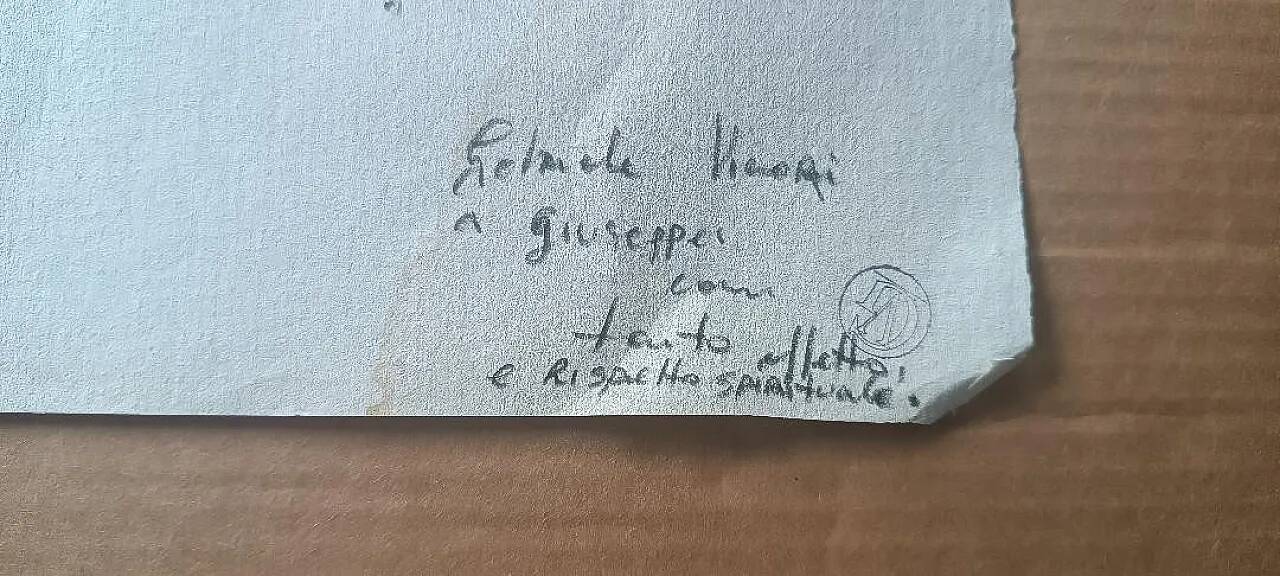 Gabriele
a Giuseppe
con
tanto affetto,
e RISpetto SPIRITUALE.